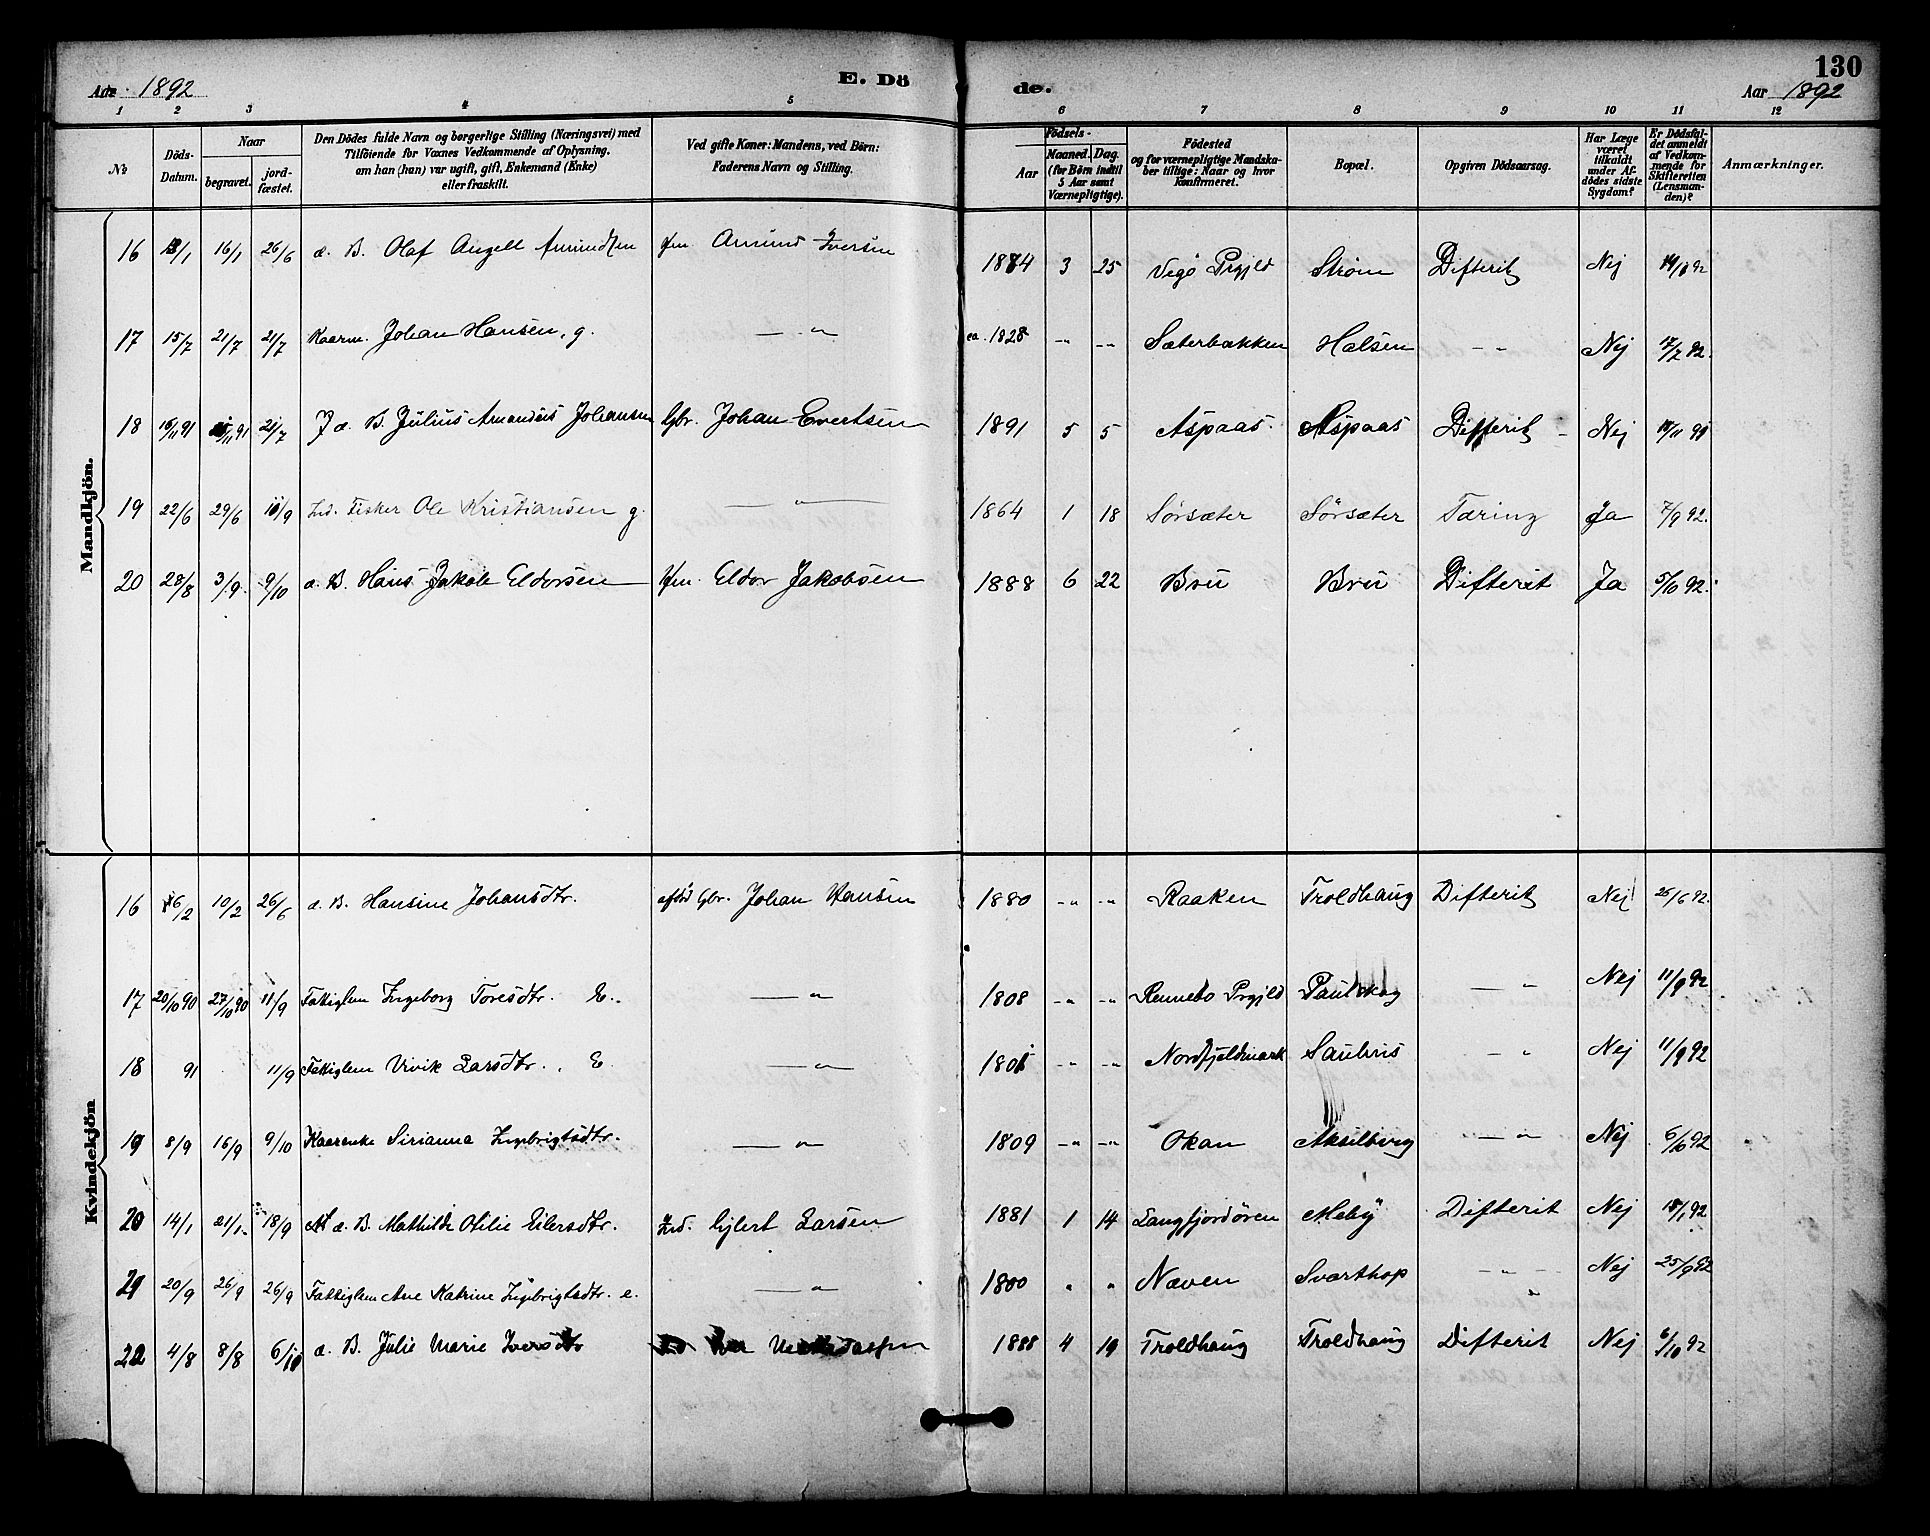 Aar 1892
E. Dö
de.
130
Aar 1892
1 2 3 4 5 6 7 8 9 10 11 12
№
Döds-Datum.
Naar
begravet.
jordfæstet.
Den Dödes fulde Navn og borgerlige Stilling (Næringsvei) med
Tilföiende for Voxnes Vedkommende af Oplysning,
om han (hun) var ugift, gift, Enkemand (Enke)
eller fraskilt.
Ved gifte Koner: Mandens, ved Börn:
Faderens Navn og Stilling.
Födsels-
Aar
Maaned. Dag.
(for Börn indtil
5 Aar samt
Værnepligtige).
Födested
og for værnepligtige Mandska-
ber tillige: Naar og hvor
Konfirmeret.
Bopæl.
Opgiven Dödsaarsag.
Har Læge
været
tilkaldt
under Af-
dödes sidste
Sygdom?
Er Dödsfal-
det anmeldt
af Vedkom-
mende for
Skifteretten
(Lensman-
den)?
Anmærkninger.
Mandkjön.
16 13/1 16/1 26/6 a. B. Olaf Angell Amundsen Amund Iversen 1884 3 25 Vegö Prgjld Ström Difterit Nej 14/1 92
17 15/7 21/7 21/7 Kaarm. Johan Hansen, g. — " ca. 1828 -"- -"- Sæterbækken Halsen -"- Nej 17/7 92.
18 16/11 91 /11 91 21/7 J a. B. Julius Amandus Johansen Gbr. Johan Evertsen 1891 5 5 Aspaas. Aspaas Difterit Nej /11 91
19 22/6 29/6 11/9 Ind. Fisker Ole Kristiansen g. — " 1864 1 18 Sörsæter Sörsæter Tæring Ja 7/9 92.
20 28/8 3/9 9/10 a. B. Hans Jakob Eldorsen Eldor Jakobsen 1888 6 22 Bru Bru Difterit Ja 5/10 92.
Kvindekjön
16 6/2 10/2 26/6 a. B. Hansine Johansdtr. Gbr. Johan Hansen 1880 -"- -"- Raaken Troldhaug Difterit Nej 26/6 92.
17 20/10 90 27/10 90 11/9 Fattiglem Ingeborg Toresdtr. E. — " 1808 -"- -"- Rennebo Prgjld Paulskog — " Nej 11/9 92
18 91 11/9 Fattiglem Vivik Larsdtr. E. — " 1801 -"- -"- Nordfjeldmark Saubris -"- Nej 11/9 92
19 8/9 16/9 9/10 Kaarenke Sirianna Ingebrigtsdtr. — " 1809 -"- -"- Okan Akselberg — " Nej 6/10 92
20 14/1 21/1 18/9 a. B. Mathilde Otilie Eilersdtr. Ind. Ejlert Larsen 1881 1 14 Langfjordören Meby Difterit Nej 18/1 92
21 20/9 26/9 26/9 Fattiglem Ane Katrine Ingebrigtsdtr. e. — " 1800 " " Næven Svarthop -"- Nej 25/9 92
22 4/8 8/8 6/10 a. B. Julie Marie Iversdtr 1888 4 19 Troldhaug Troldhaug Difterit Nej 6/10 92